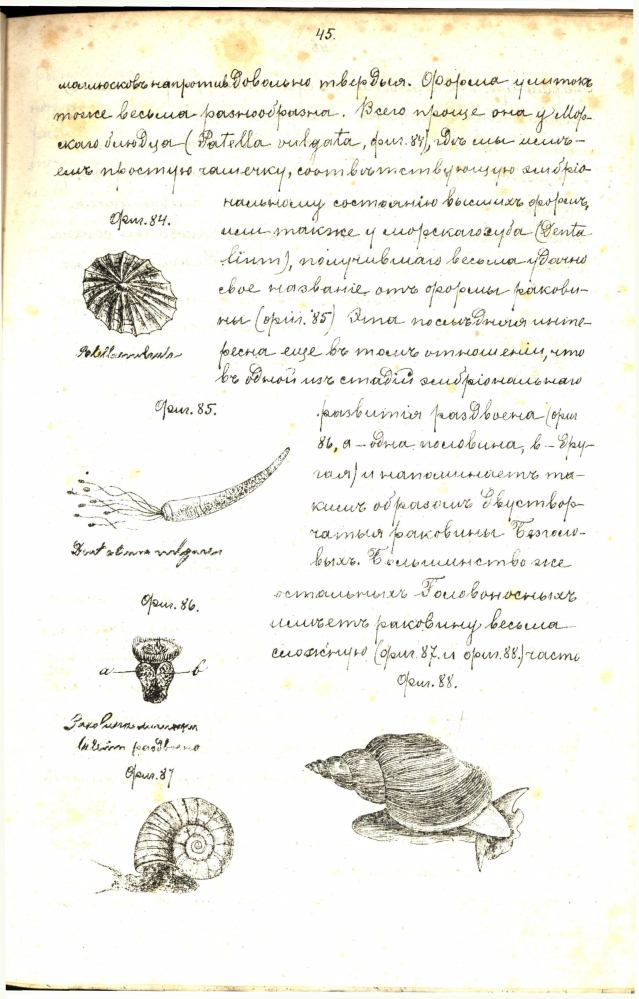 45.
маллюсковъ напротивъ довольно твердыя. Форма улитокъ
тоже весьма разнообразна. Всего проще она у Мор-
скаго блюдца (Patella vulgata, фиг. 84), гдѣ мы имѣ-
емъ простую чашечку, соотвѣтствующую эмбріо-
нальному состоянію высшихъ формъ,
или также у морскаго зуба (Denta
lium), получившаго весьма удачно
свое названіе отъ формы ракови-
ны (фиг. 85) Эта послѣдняя инте-
ресна еще въ томъ отношеніи, что
въ одной изъ стадій эмбріональнаго
Фиг. 84.
Фиг. 85.
развитія раздвоена (фиг
86, а – одна половина, в – дру-
гая) и напоминаетъ та-
кимъ образомъ двуствор-
чатыя раковины Безголо-
выхъ. Большинство же
остальныхъ Головоносныхъ
имѣетъ раковину весьма
сложную (фиг. 87. и фиг. 88.) часто
Dentalium vulgare
Фиг. 86.
a
b
Раковина
раздвоена
Фиг. 87
Фиг. 88.